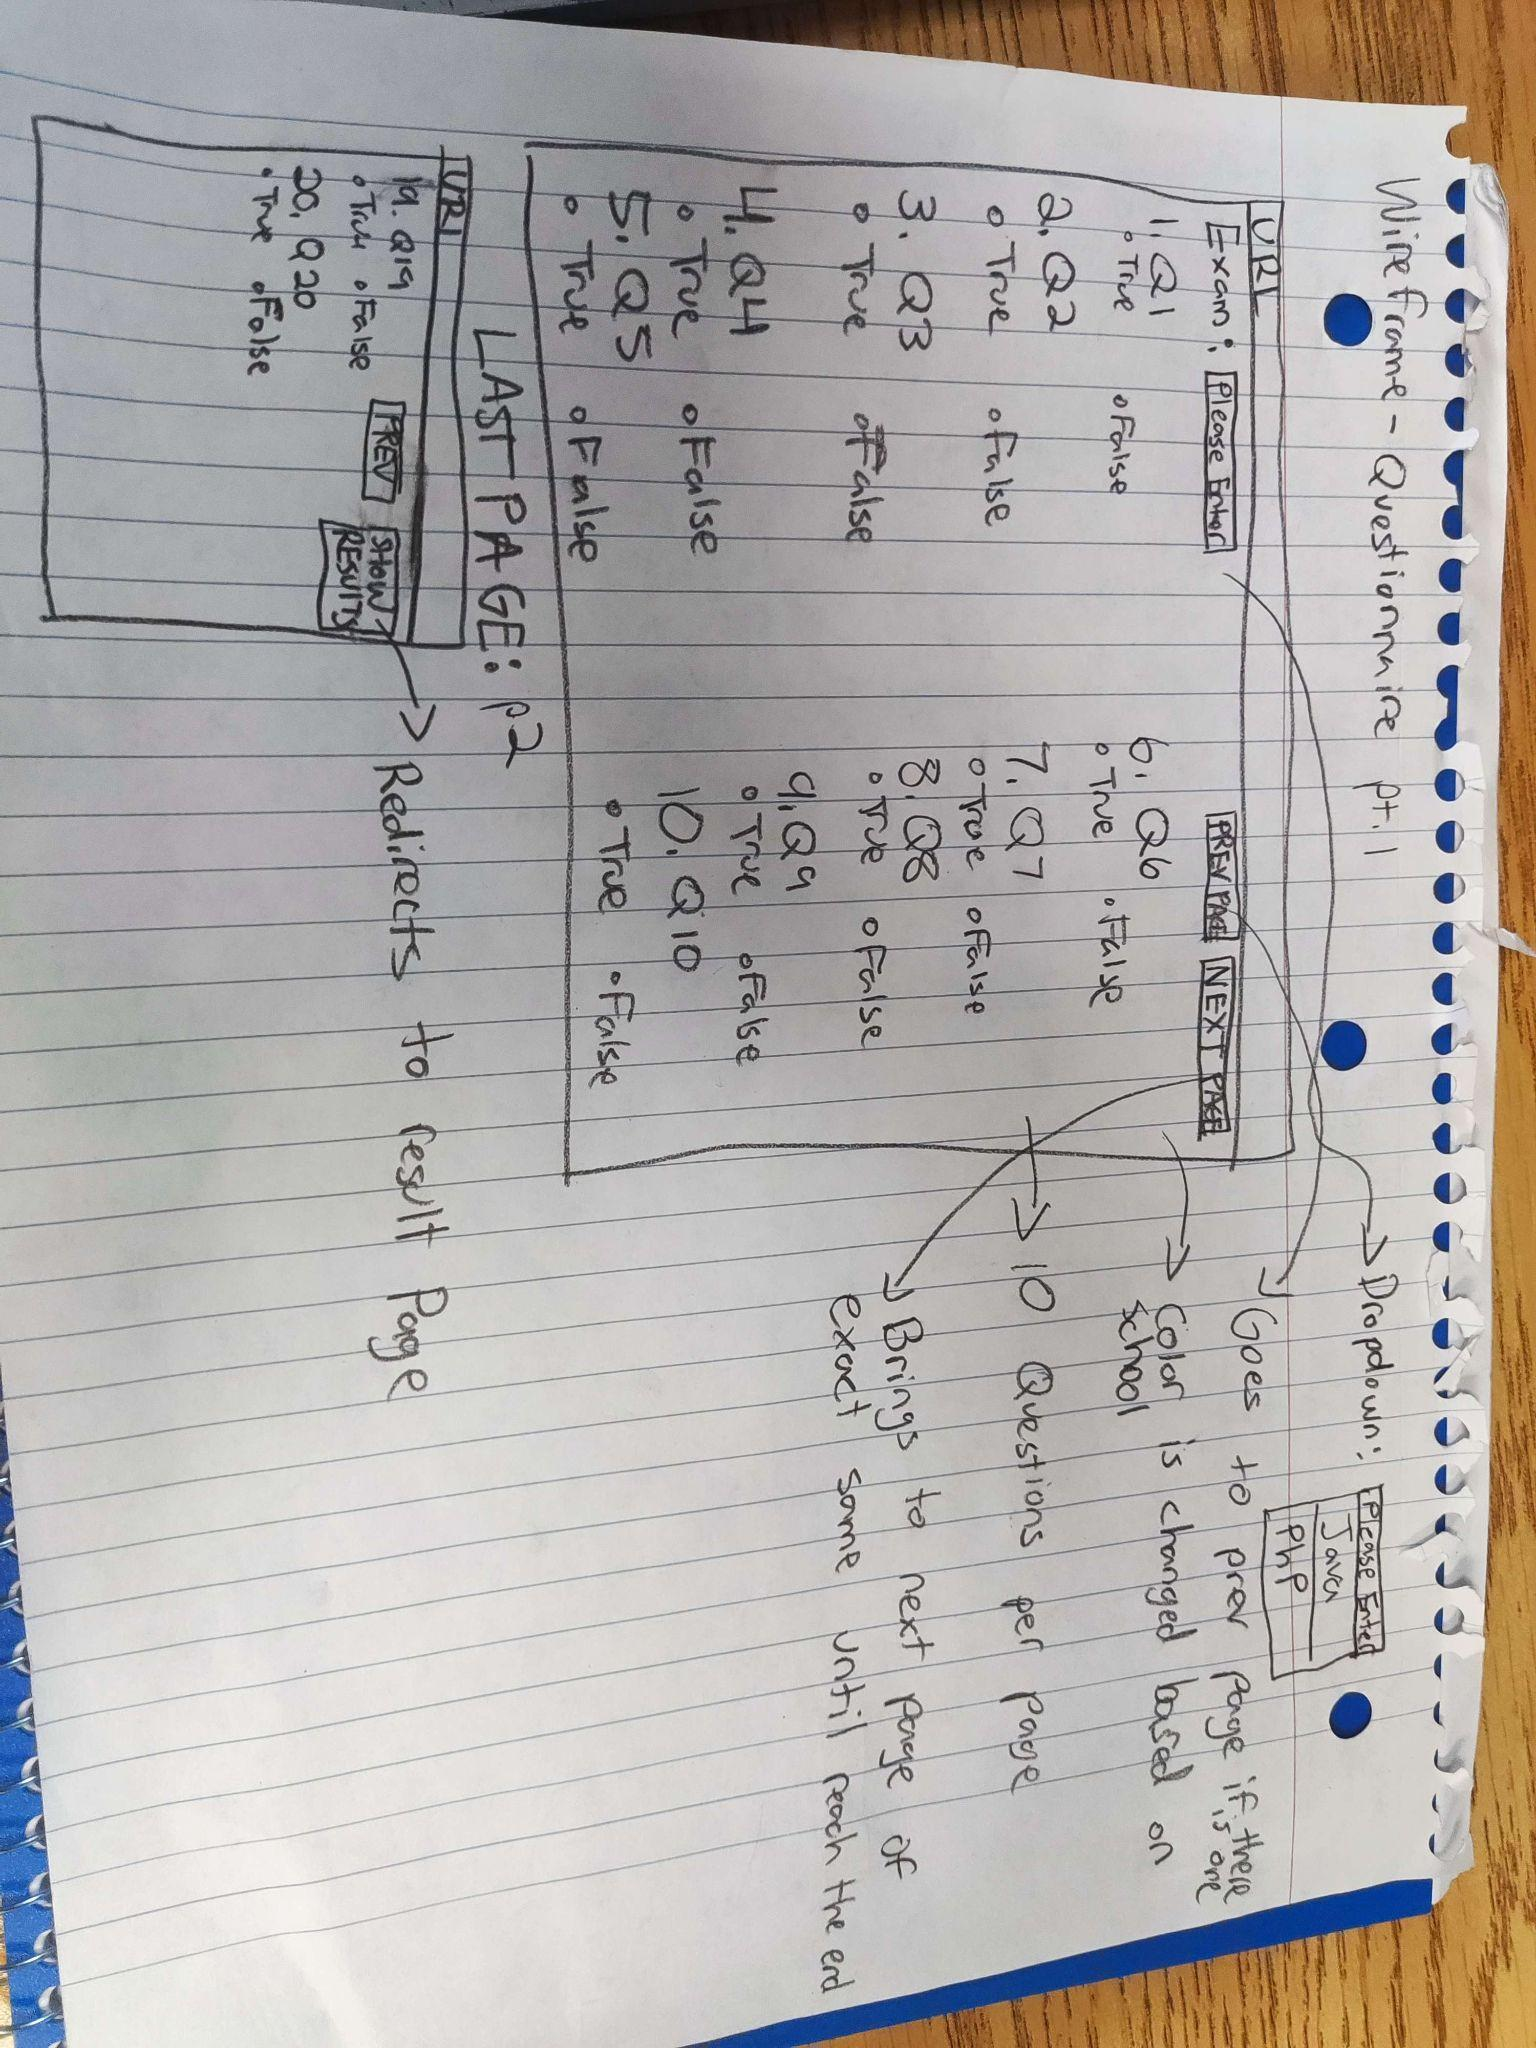 Wireframe - Questionnaire pt.1
URL
Exam: Please Enter
PREV PAGE NEXT PAGE
1. Q1
True False
2. Q2
True False
3. Q3
True False
4. Q4
True False
5. Q5
True False
6. Q6
True False
7. Q7
True False
8. Q8
True False
9. Q9
True False
10. Q10
True False
Dropdown: Please Enter
Java
PhP
Goes to prev page if there
is one
Color is changed based on
School
10 Questions per page
Brings to next page of
exact same until reach the end
LAST PAGE: p2
URL
19. Q19
True False
20. Q20
True False
PREV
SHOW
RESULTS
Redirects to result page